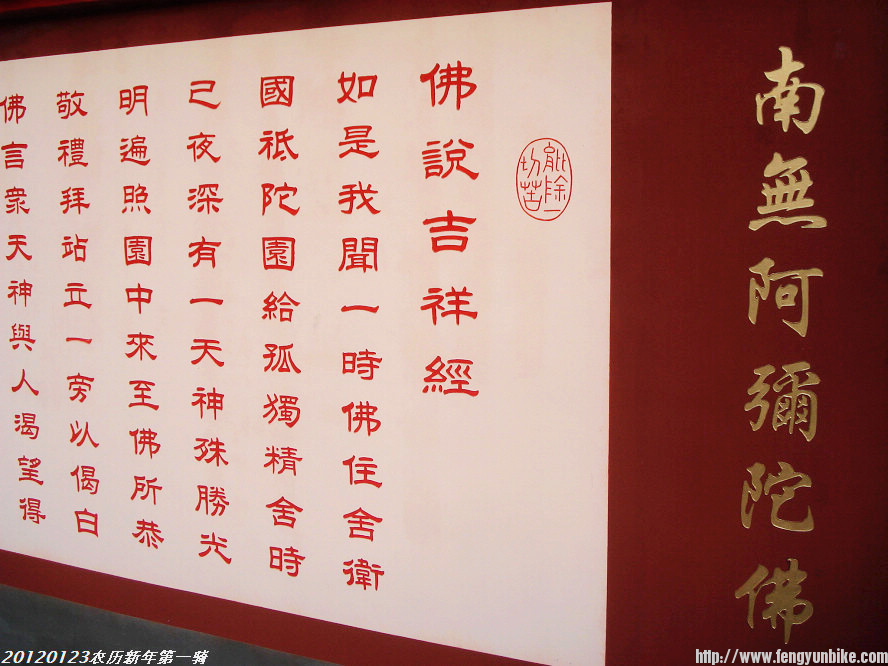 南無阿彌陀佛
能除一
切苦
佛說吉祥經
如是我聞一時佛住舍衛
國祇陀園給孤獨精舍時
已夜深有一天神殊勝光
明遍照園中來至佛所恭
敬禮拜站立一旁以偈白
佛言衆天神與人渴望得
20120123农历新年第一骑
http://www.fengyunbike.com